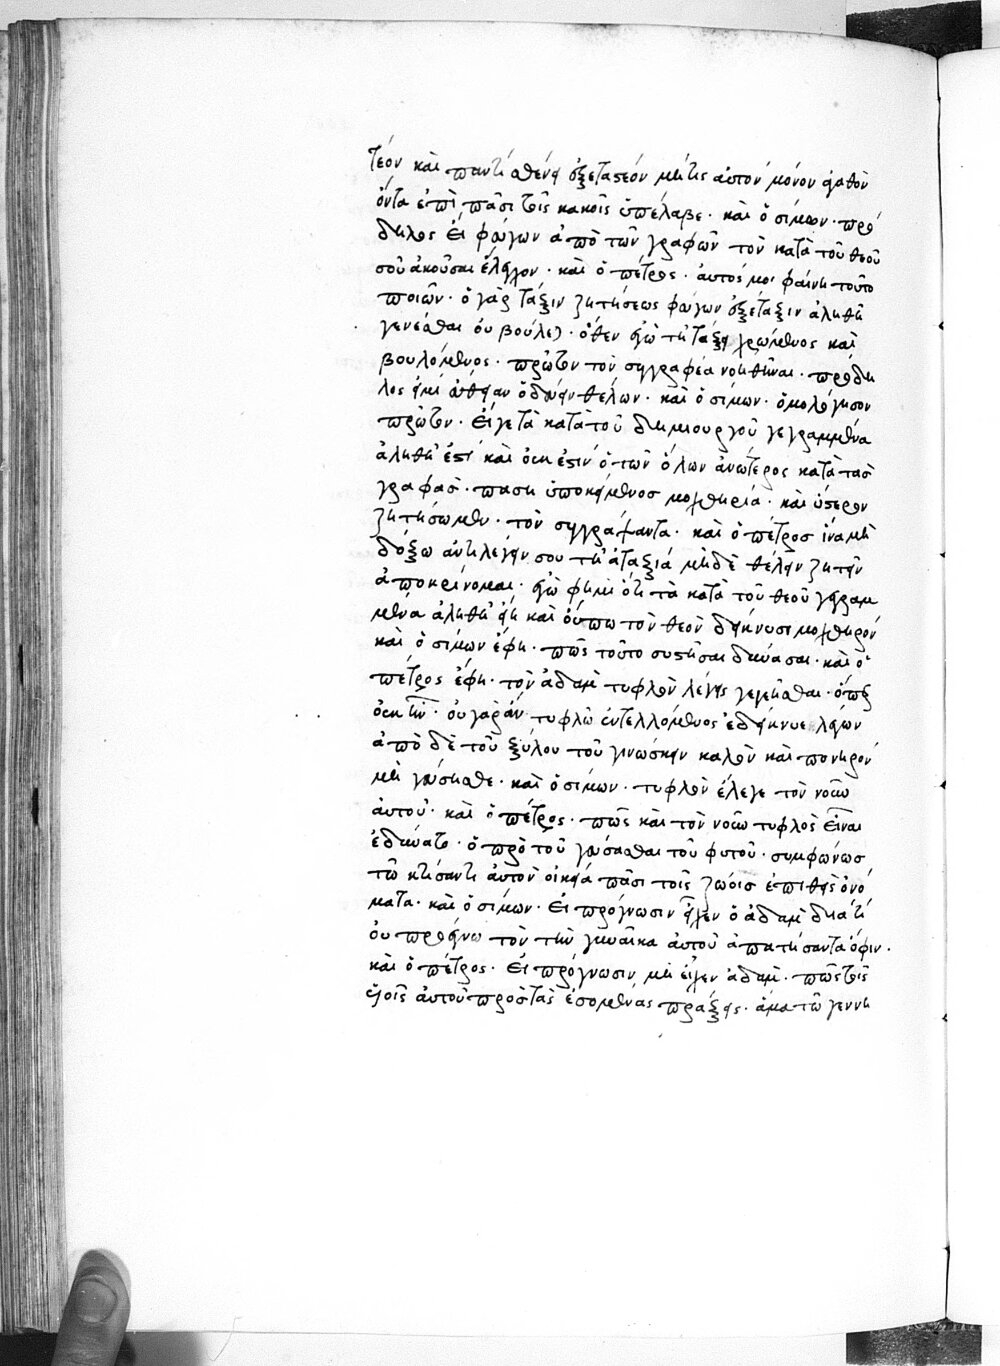 τέον καὶ παντὶ σθένει ἐξεταστέον μήτις αὐτὸν μόνον ἀγαθὸν
ὄντα ἐπὶ πᾶσι τοῖς κακοῖς ὑπέλαβε· καὶ ὁ σίμων· πρό
δηλος εἶ φεύγων ἀπὸ τῶν γραφῶν τὸν κατὰ τοῦ θεοῦ
σοῦ ἀκοῦσαι ἔλεγχον· καὶ ὁ πέτρος· αὐτός μοι φαίνη τοῦτο
ποιῶν· ὁ γὰρ τάξιν ζητήσεως φεύγων ἐξέταξιν ἀληθῆ
γενέσθαι οὐ βούλεται· ὅθεν ἐγὼ τῆ τάξει χρώμενος καὶ
βουλόμενος· πρῶτον τὸν συγγραφέα νοηθῆναι· πρόδη
λός εἰμι εὐθεῖαν ὁδεύειν θέλων· καὶ ὁ σίμων· ὁμολόγησον
πρῶτον· εἴγε τὰ κατὰ τοῦ δημιουργοῦ γεγραμμένα
ἀληθῆ ἐστὶ καὶ οὐκ ἔστιν ὁ τῶν ὅλων ἀνώτερος κατὰ τὰσ
γραφὰσ· πάση ὑποκείμενοσ μοχθηρία· καὶ ὕστερον
ζητήσωμεν· τὸν συγγράψαντα· καὶ ὁ πέτροσ ἵνα μὴ
δόξω ἀντιλέγειν σου τῆ ἀταξία μὴ δὲ θέλειν ζητεῖν
ἀποκρίνομαι· ἐγὼ φημὶ ὅτι τὰ κατὰ τοῦ θεοῦ γεγραμ
μένα ἀληθῆ εἴη καὶ οὕπω τὸν θεὸν δείκνυσι μοχθηρόν
καὶ ὁ σίμων ἔφη· πῶς τοῦτο συστῆσαι δυνάσαι· καὶ ὁ
πέτρος ἔφη· τὸν ἀδὰμ τυφλὸν λέγεις γεγενῆσθαι· ὅπερ
οὐκ ἦν· οὐ γὰρ ἂν τυφλῶ ἐντελλόμενος ἐδείκνυε λέγων
ἀπὸ δὲ τοῦ ξύλου τοῦ γινώσκειν καλὸν καὶ πονηρόν
μὴ γεύσησθε· καὶ ὁ σίμων· τυφλὸν ἔλεγε τὸν νοῦν
αὐτοῦ· καὶ ὁ πέτρος· πῶς καὶ τὸν νοῦν τυφλὸς εἶναι
ἐδύνατο· ὁ πρὸ τοῦ γεύσασθαι τοῦ φυτοῦ· συμφώνωσ
τῶ κτίσαντι αὐτὸν οἰκεῖα πᾶσι τοῖς ζώοισ ἐπιθεὶς ὀνό
ματα· καὶ ὁ σίμων· εἰ πρόγνωσιν εἶχεν ὁ ἀδὰμ διατί
οὐ προέγνω τὸν τὴν γυναῖκα αὐτοῦ ἀπατήσαντα ὄφιν·
καὶ ὁ πέτρος· εἰ πρόγνωσιν μὴ εἶχεν ἀδὰμ· πῶς τοῖς
υἱοῖς αὐτοῦ πρὸς τὰς ἐσομένας πράξεις· ἅμα τῶ γεννη